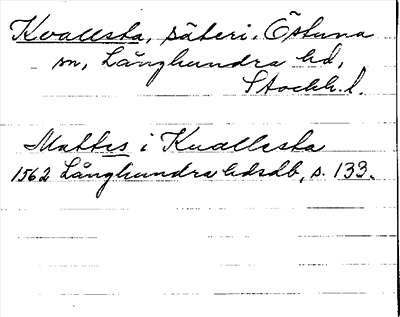 Kvallsta, säteri, Östuna
sn, Långhundra hd,
Stockh. l.
Mattes i Kuallesta
1562 Långhundra hdsdb, s. 133.